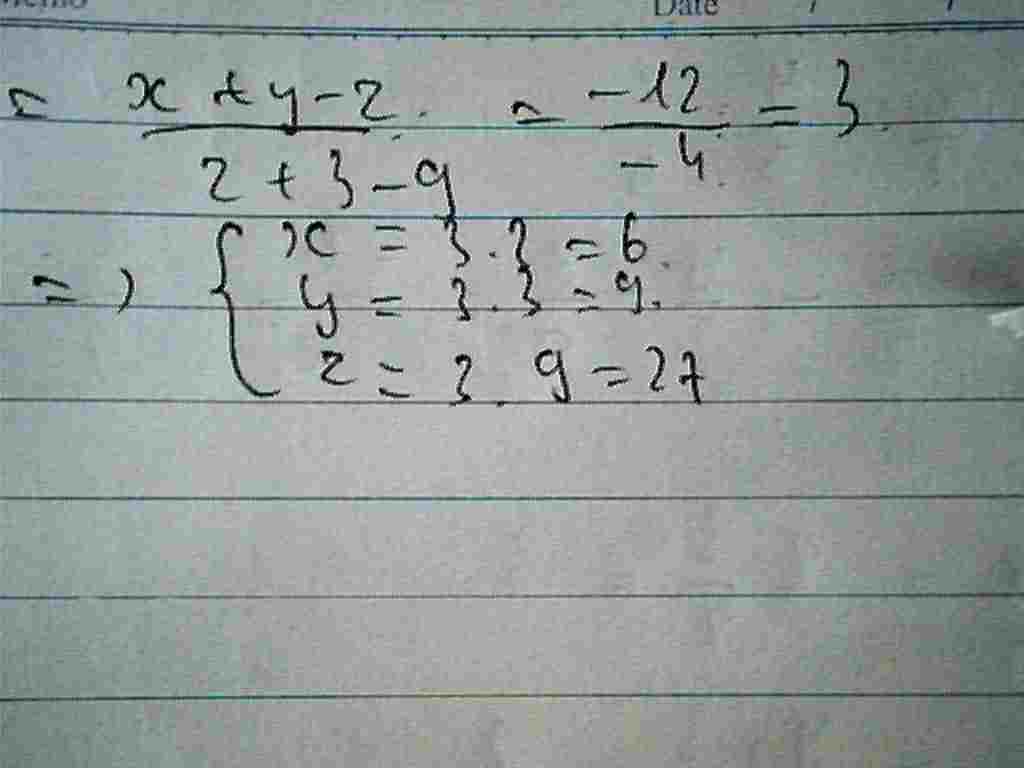 Memo Date / /
= x + y - z / 2 + 3 - 9 = -12 / -4 = 3
=> { x = 3 . 2 = 6
y = 3 . 3 = 9
z = 3 . 9 = 27